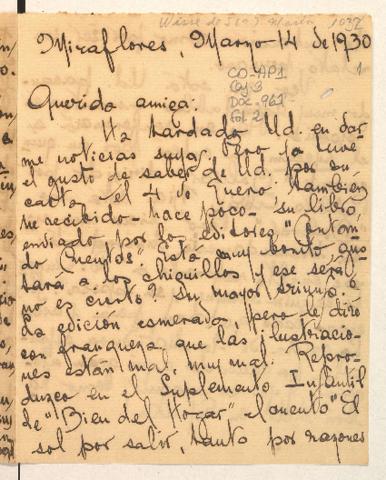 Miraflores, Marzo 14 de 1930
CO-AP1
Caj 3
Doc. 961
Fol. 2
1
Querida amiga:
Ha tardado Ud. en dar
me noticias suyas. Pero ya tuve
el gusto de saber de Ud. por su
carta el 4 de Enero; también
he recibido - hace poco - su libro,
enviado por los editores "Contan
do Cuentos". Está muy bonito, gus
tará a los chiquillos y ese será
no es cierto? su mayor triunfo.
La edición esmerada, pero le diré
con franqueza que las ilustracio-
nes están mal, muy mal. Repro-
duzco en el Suplemento Infantil
de "Bien del Hogar" el cuento "El
sol por salir, tanto por razones